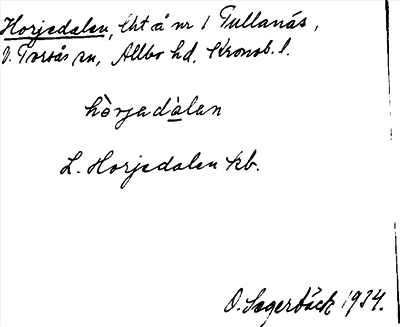 Horjedalen, lht å nr 1 Tullanäs,
V. Torsås sn, Allbo hd, Kronob. l.
hòrjadàlan
L. Horjedalen kb.
O. Segerbäck 1934.